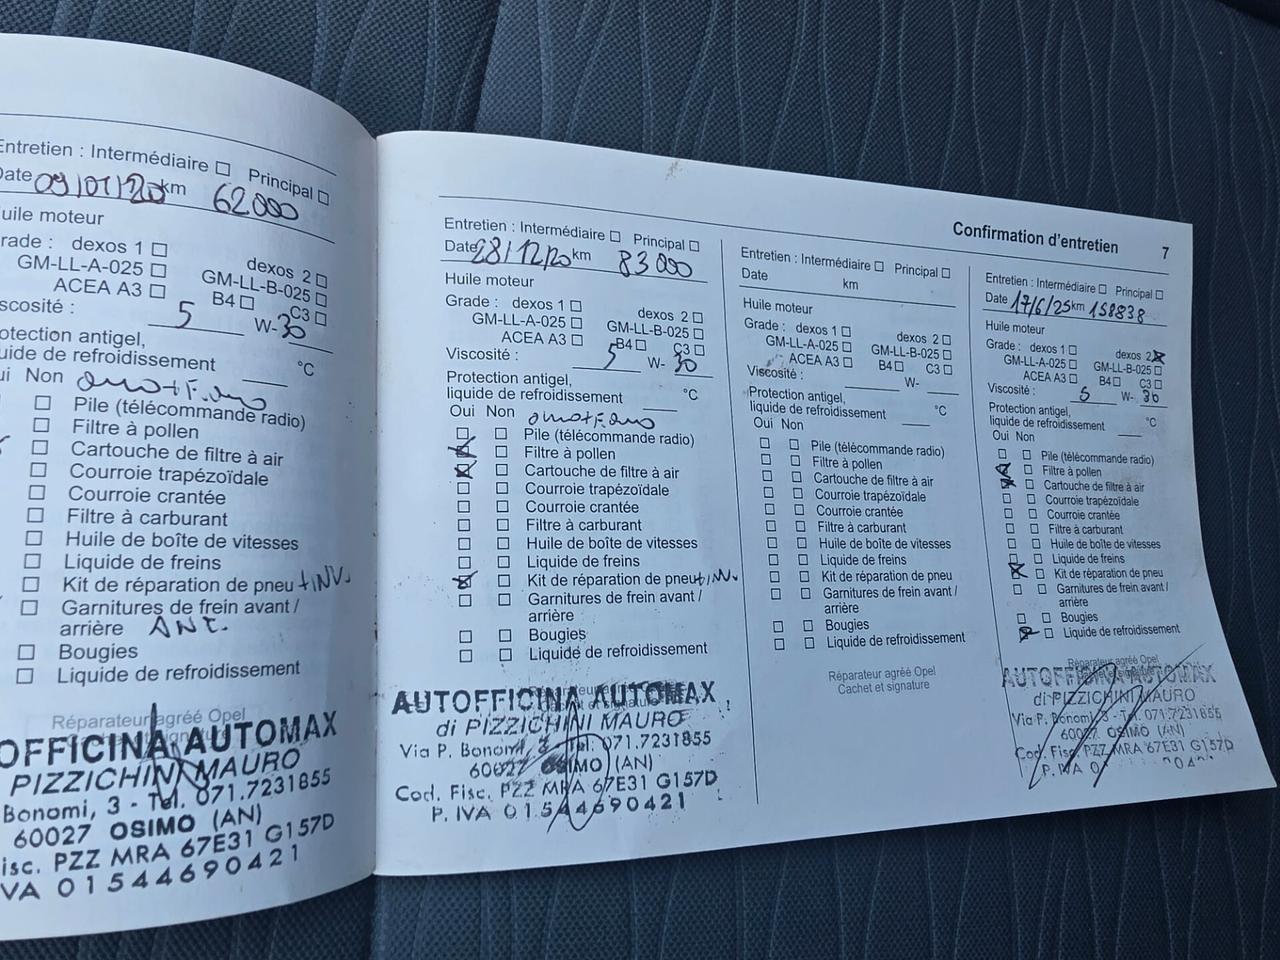 Entretien : Intermédiaire Principal
Date 09/01/20 km 62000
uile moteur
rade : dexos 1 dexos 2
GM-LL-A-025 GM-LL-B-025
ACEA A3 B4 C3
iscosité : 5 W- 30
otection antigel,
uide de refroidissement °C
ui Non
Pile (télécommande radio)
Filtre à pollen
Cartouche de filtre à air
Courroie trapézoïdale
Courroie crantée
Filtre à carburant
Huile de boîte de vitesses
Liquide de freins
Kit de réparation de pneu + INV.
Garnitures de frein avant /
arrière ANT.
Bougies
Liquide de refroidissement
Réparateur agréé Opel
Cachet et signature
OFFICINA AUTOMAX
PIZZICHINI MAURO
Bonomi, 3 - Tel. 071.7231855
60027 OSIMO (AN)
isc. PZZ MRA 67E31 G157D
VA 01544690421
Confirmation d'entretien 7
Entretien : Intermédiaire Principal
Date 28/12/20 km 83000
Huile moteur
Grade : dexos 1 dexos 2
GM-LL-A-025 GM-LL-B-025
ACEA A3 B4 C3
Viscosité : 5 W- 30
Protection antigel,
liquide de refroidissement °C
Oui Non
Pile (télécommande radio)
Filtre à pollen
Cartouche de filtre à air
Courroie trapézoïdale
Courroie crantée
Filtre à carburant
Huile de boîte de vitesses
Liquide de freins
Kit de réparation de pneu + INV.
Garnitures de frein avant /
arrière
Bougies
Liquide de refroidissement
Réparateur agréé Opel
Cachet et signature
AUTOFFICINA AUTOMAX
di PIZZICHINI MAURO
Via P. Bonomi, 3 - Tel. 071.7231855
60027 OSIMO (AN)
Cod. Fisc. PZZ MRA 67E31 G157D
P. IVA 01544690421
Entretien : Intermédiaire Principal
Date km
Huile moteur
Grade : dexos 1 dexos 2
GM-LL-A-025 GM-LL-B-025
ACEA A3 B4 C3
Viscosité : W-
Protection antigel,
liquide de refroidissement °C
Oui Non
Pile (télécommande radio)
Filtre à pollen
Cartouche de filtre à air
Courroie trapézoïdale
Courroie crantée
Filtre à carburant
Huile de boîte de vitesses
Liquide de freins
Kit de réparation de pneu
Garnitures de frein avant /
arrière
Bougies
Liquide de refroidissement
Réparateur agréé Opel
Cachet et signature
Entretien : Intermédiaire Principal
Date 17/6/25 km 158838
Huile moteur
Grade : dexos 1 dexos 2
GM-LL-A-025 GM-LL-B-025
ACEA A3 B4 C3
Viscosité : 5 W- 30
Protection antigel,
liquide de refroidissement °C
Oui Non
Pile (télécommande radio)
Filtre à pollen
Cartouche de filtre à air
Courroie trapézoïdale
Courroie crantée
Filtre à carburant
Huile de boîte de vitesses
Liquide de freins
Kit de réparation de pneu
Garnitures de frein avant /
arrière
Bougies
Liquide de refroidissement
Réparateur agréé Opel
AUTOFFICINA AUTOMAX
di PIZZICHINI MAURO
Via P. Bonomi, 3 - Tel. 071.7231855
60027 OSIMO (AN)
Cod. Fisc. PZZ MRA 67E31 G157D
P. IVA